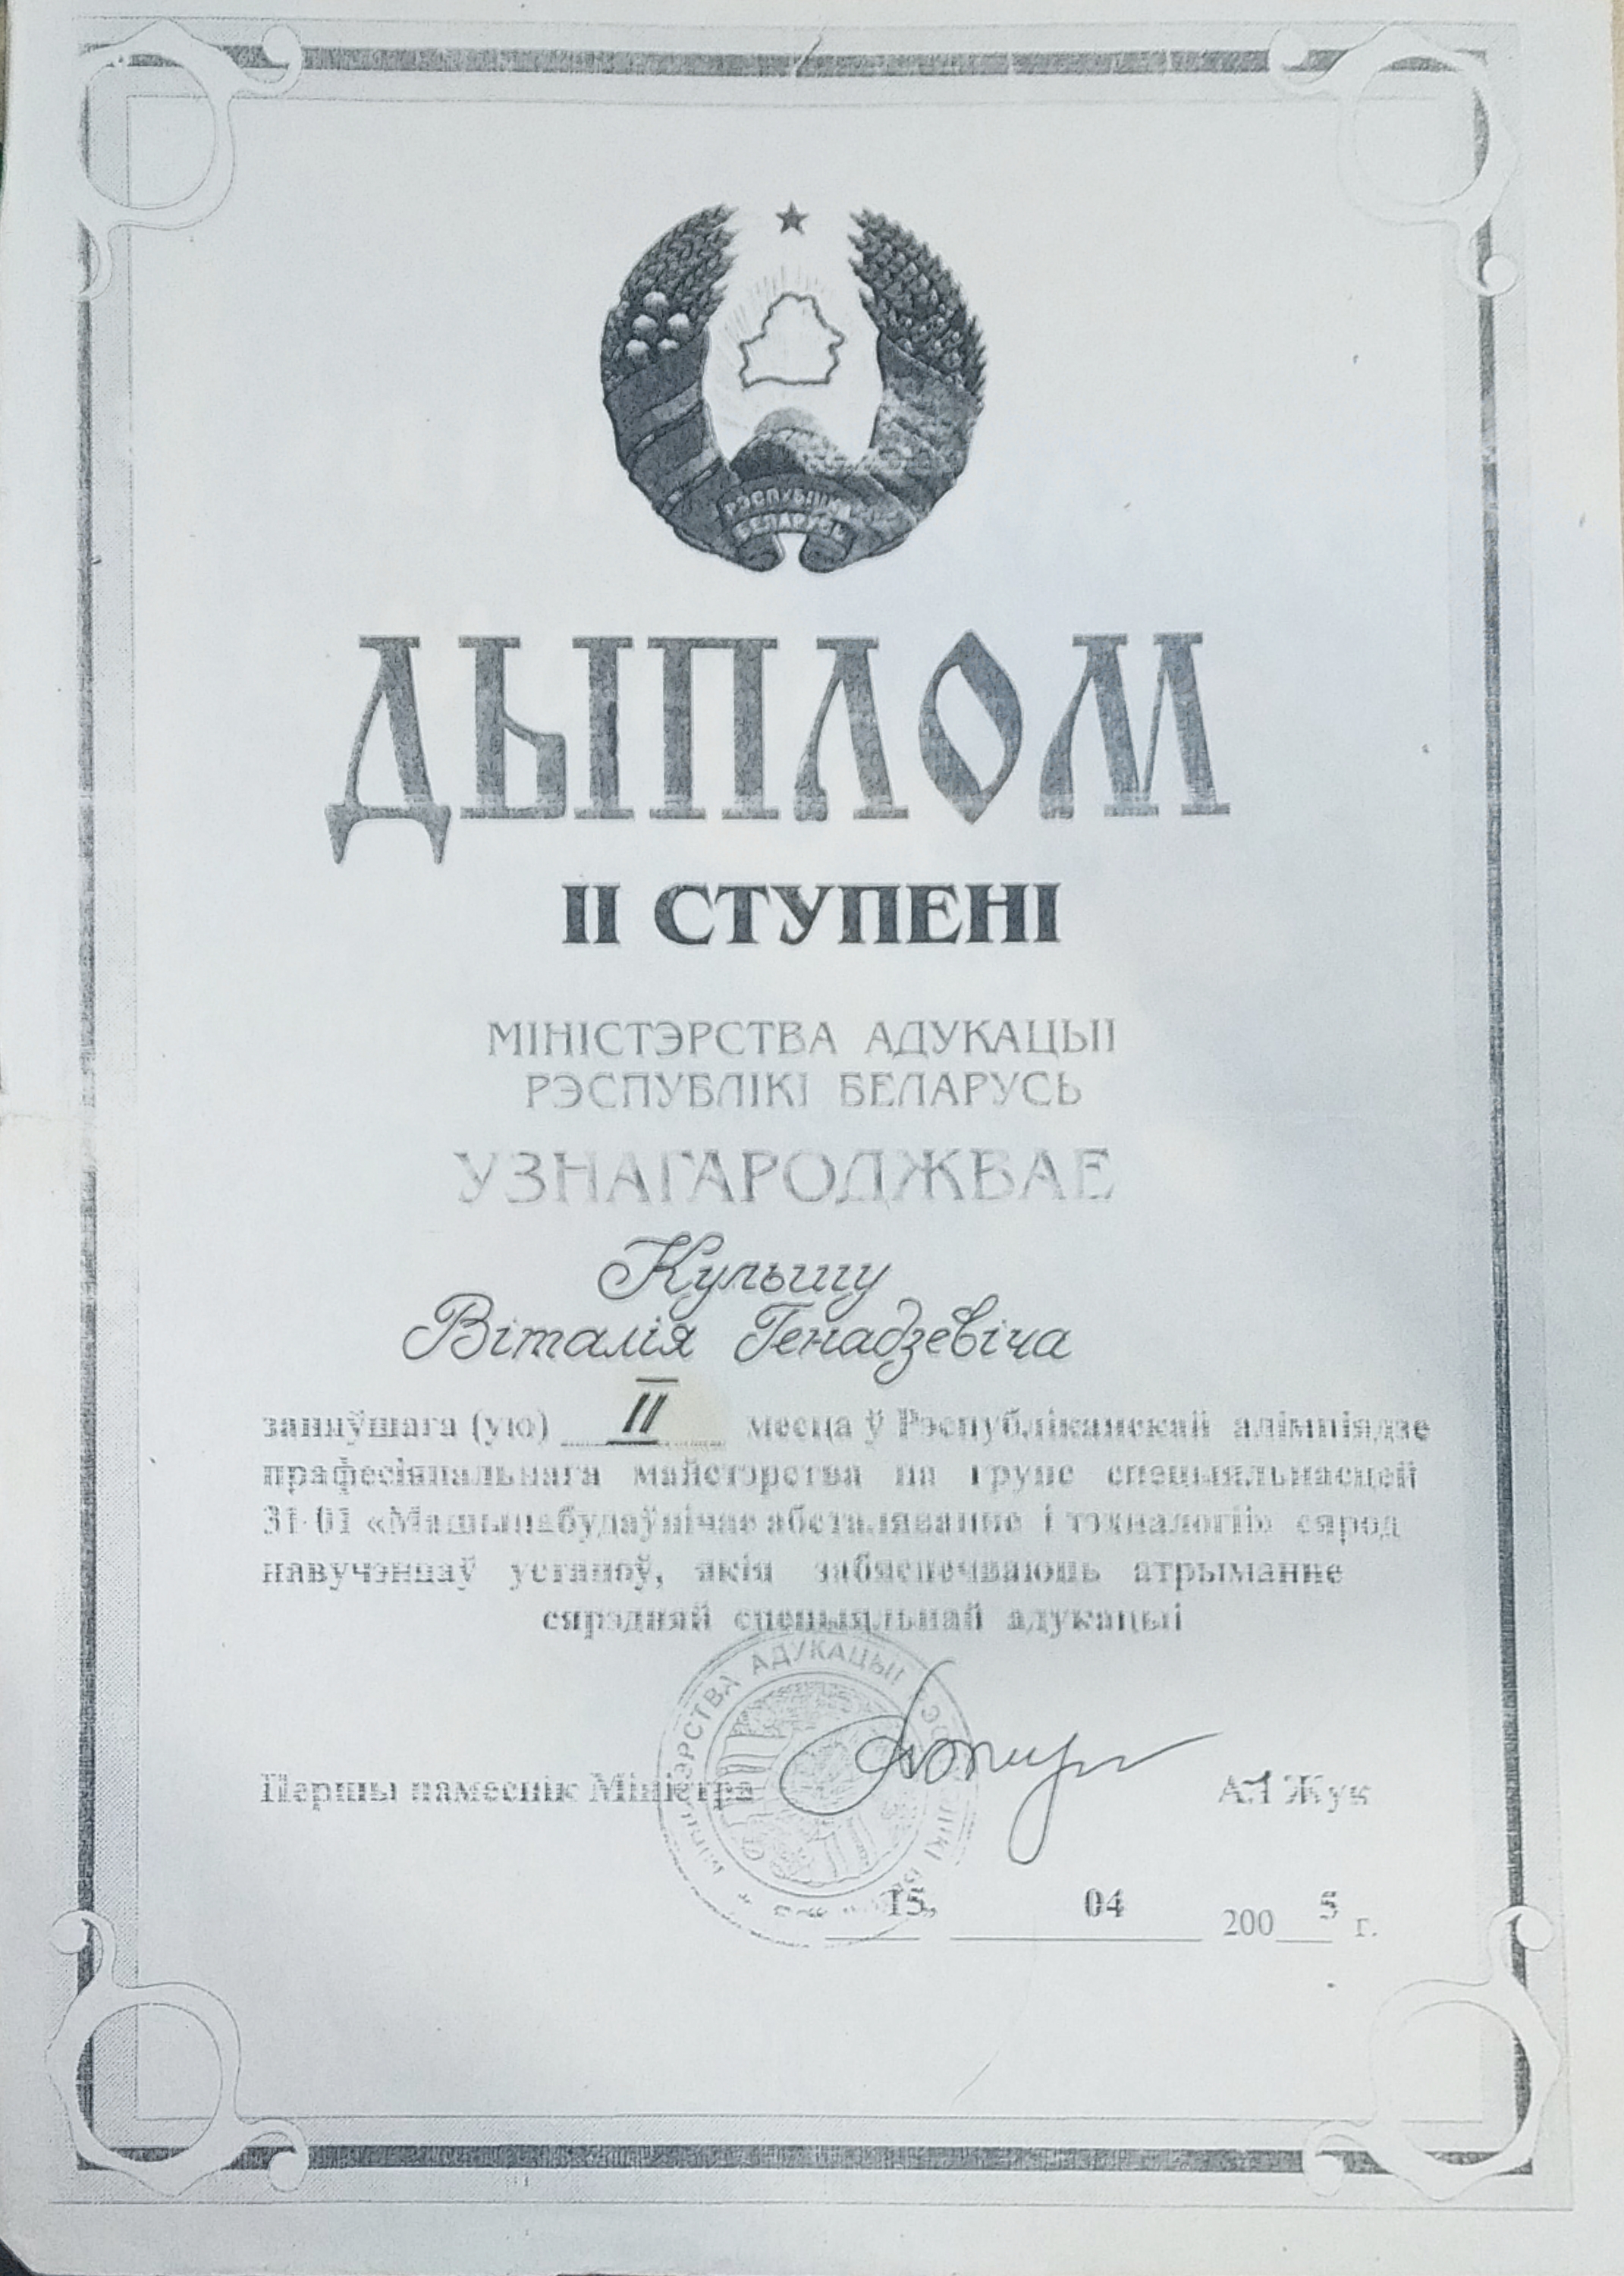 РЭСПУБЛІКА
БЕЛАРУСЬ
ДЫПЛОМ
II СТУПЕНІ
МІНІСТЭРСТВА АДУКАЦЫІ
РЭСПУБЛІКІ БЕЛАРУСЬ
УЗНАГАРОДЖВАЕ
Кульшу
Віталія Генадзевіча
заняўшага (ую) II месца ў Рэспубліканскай алімпіядзе
прафесіянальнага майстэрства па групе спецыяльнасцей
31-01 «Машынабудаўнічае абсталяванне і тэхналогіі» сярод
навучэнцаў устаноў, якія забяспечваюць атрыманне
сярэдняй спецыяльнай адукацыі
АДУКАЦЫІ
Першы намеснік Міністра
Жук
15, 04 2005 г.